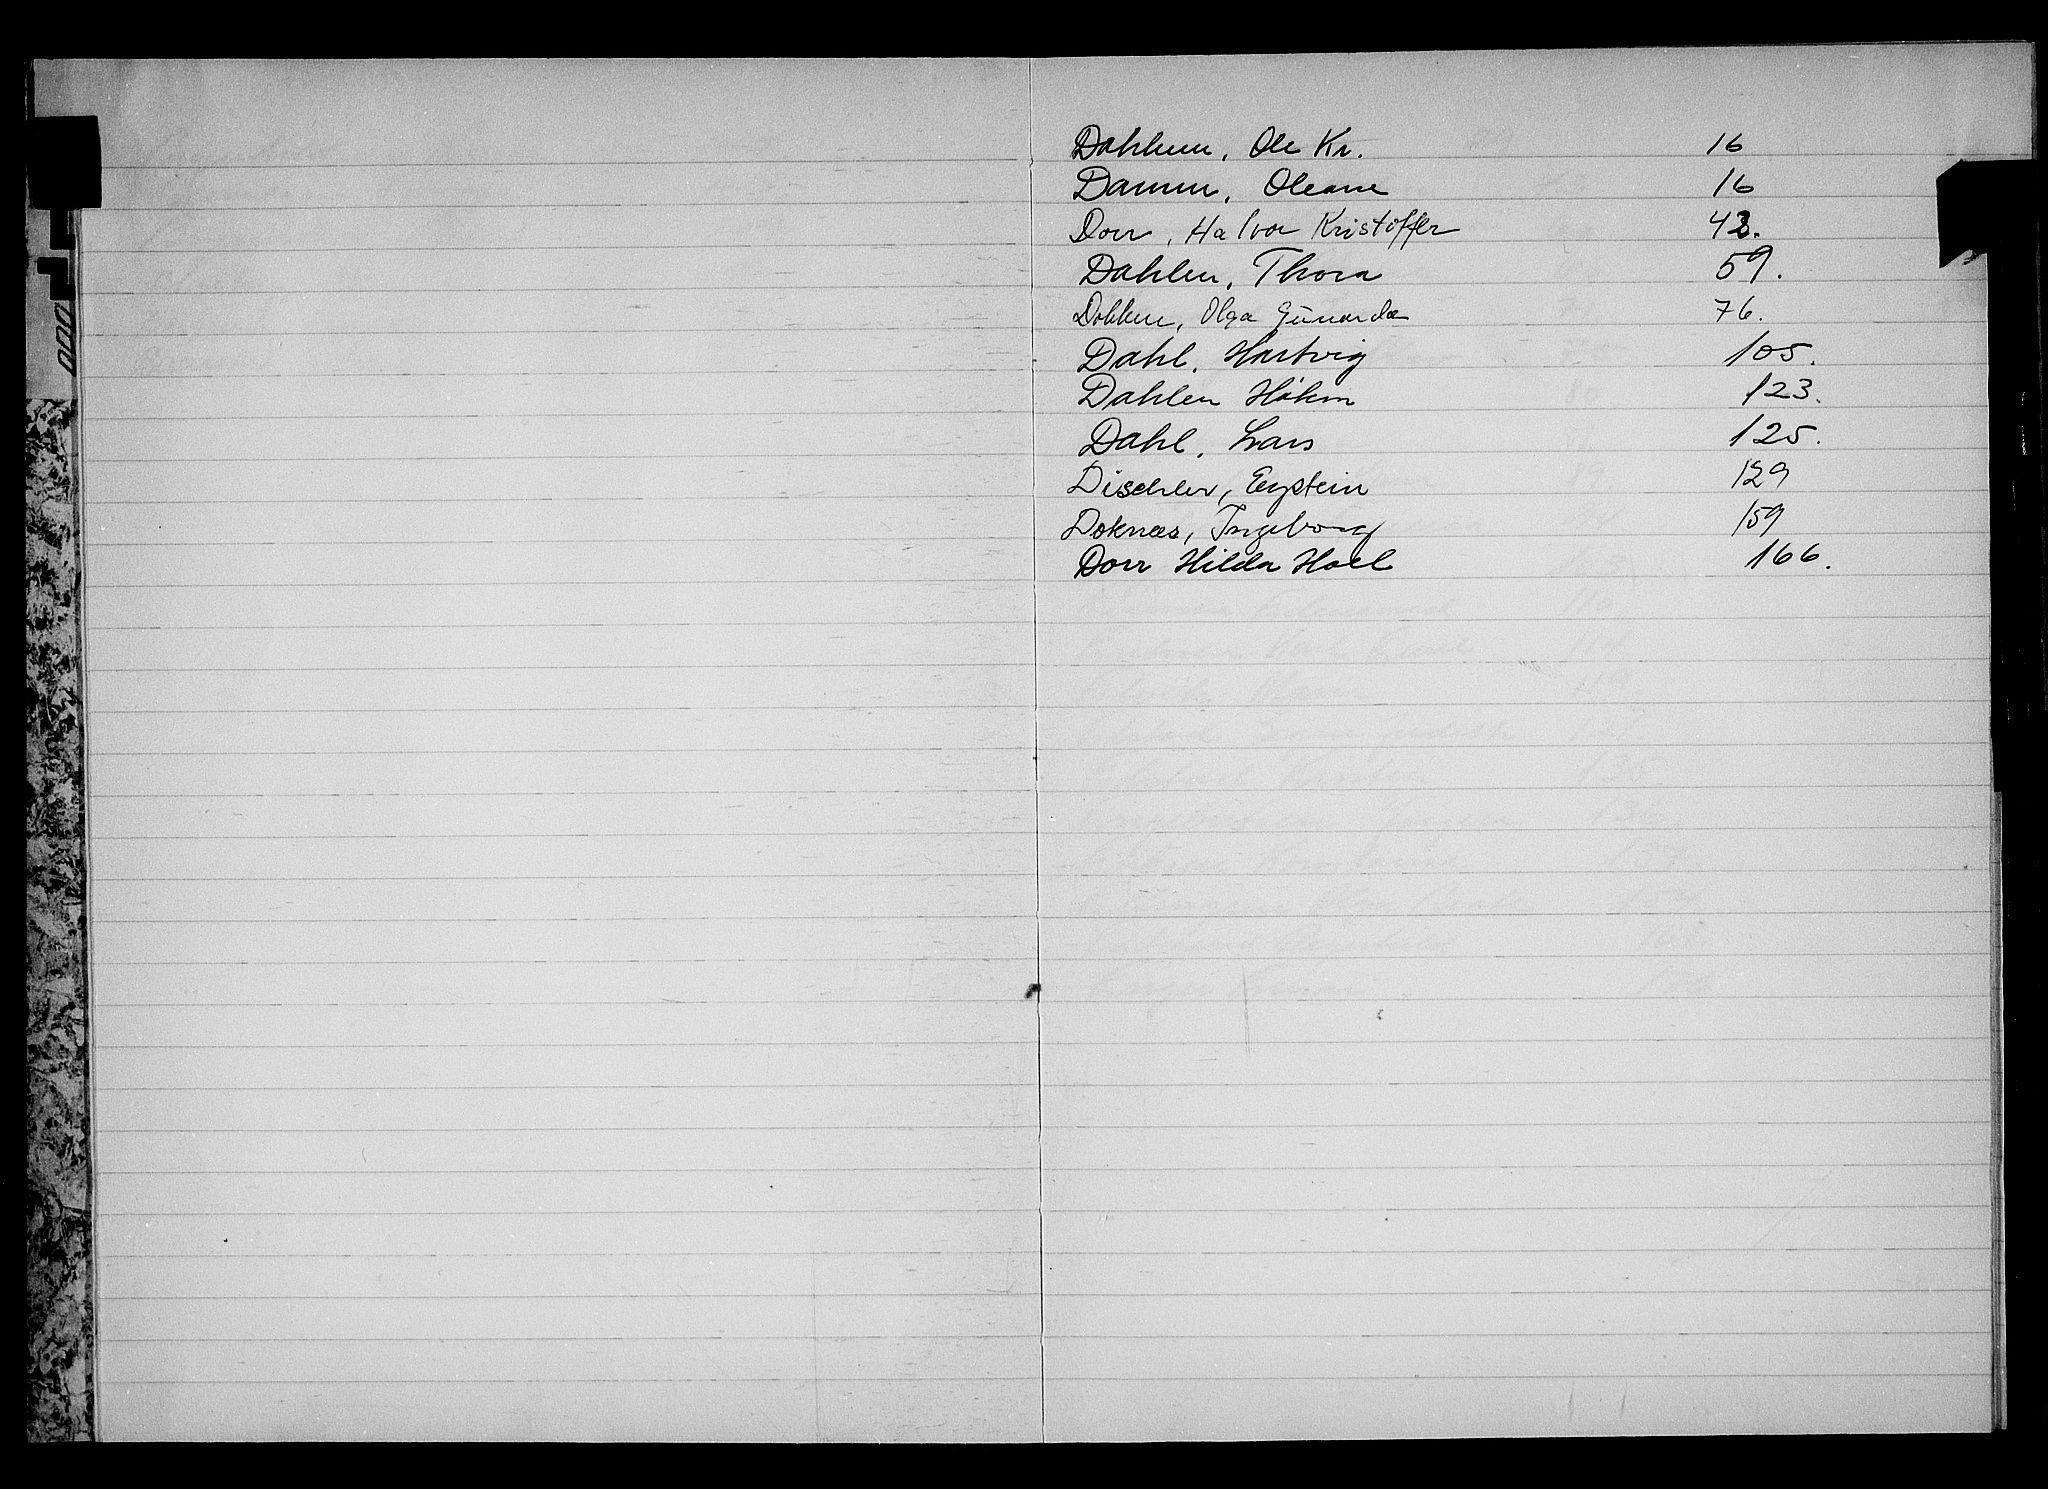 Dahlum, Ole Kr. 16
Damm, Oleane 16
Dorr, Halvor Kristoffer 43.
Dahlen, Thora 59.
Dokken, Olga Gunarda 76.
Dahl, Hartvig 105.
Dahlen Håkon 123.
Dahl, Lars 125.
Dischler, Eystein 129
Doknæs, Ingeborg 159
Dorr Hilda Hall 166.